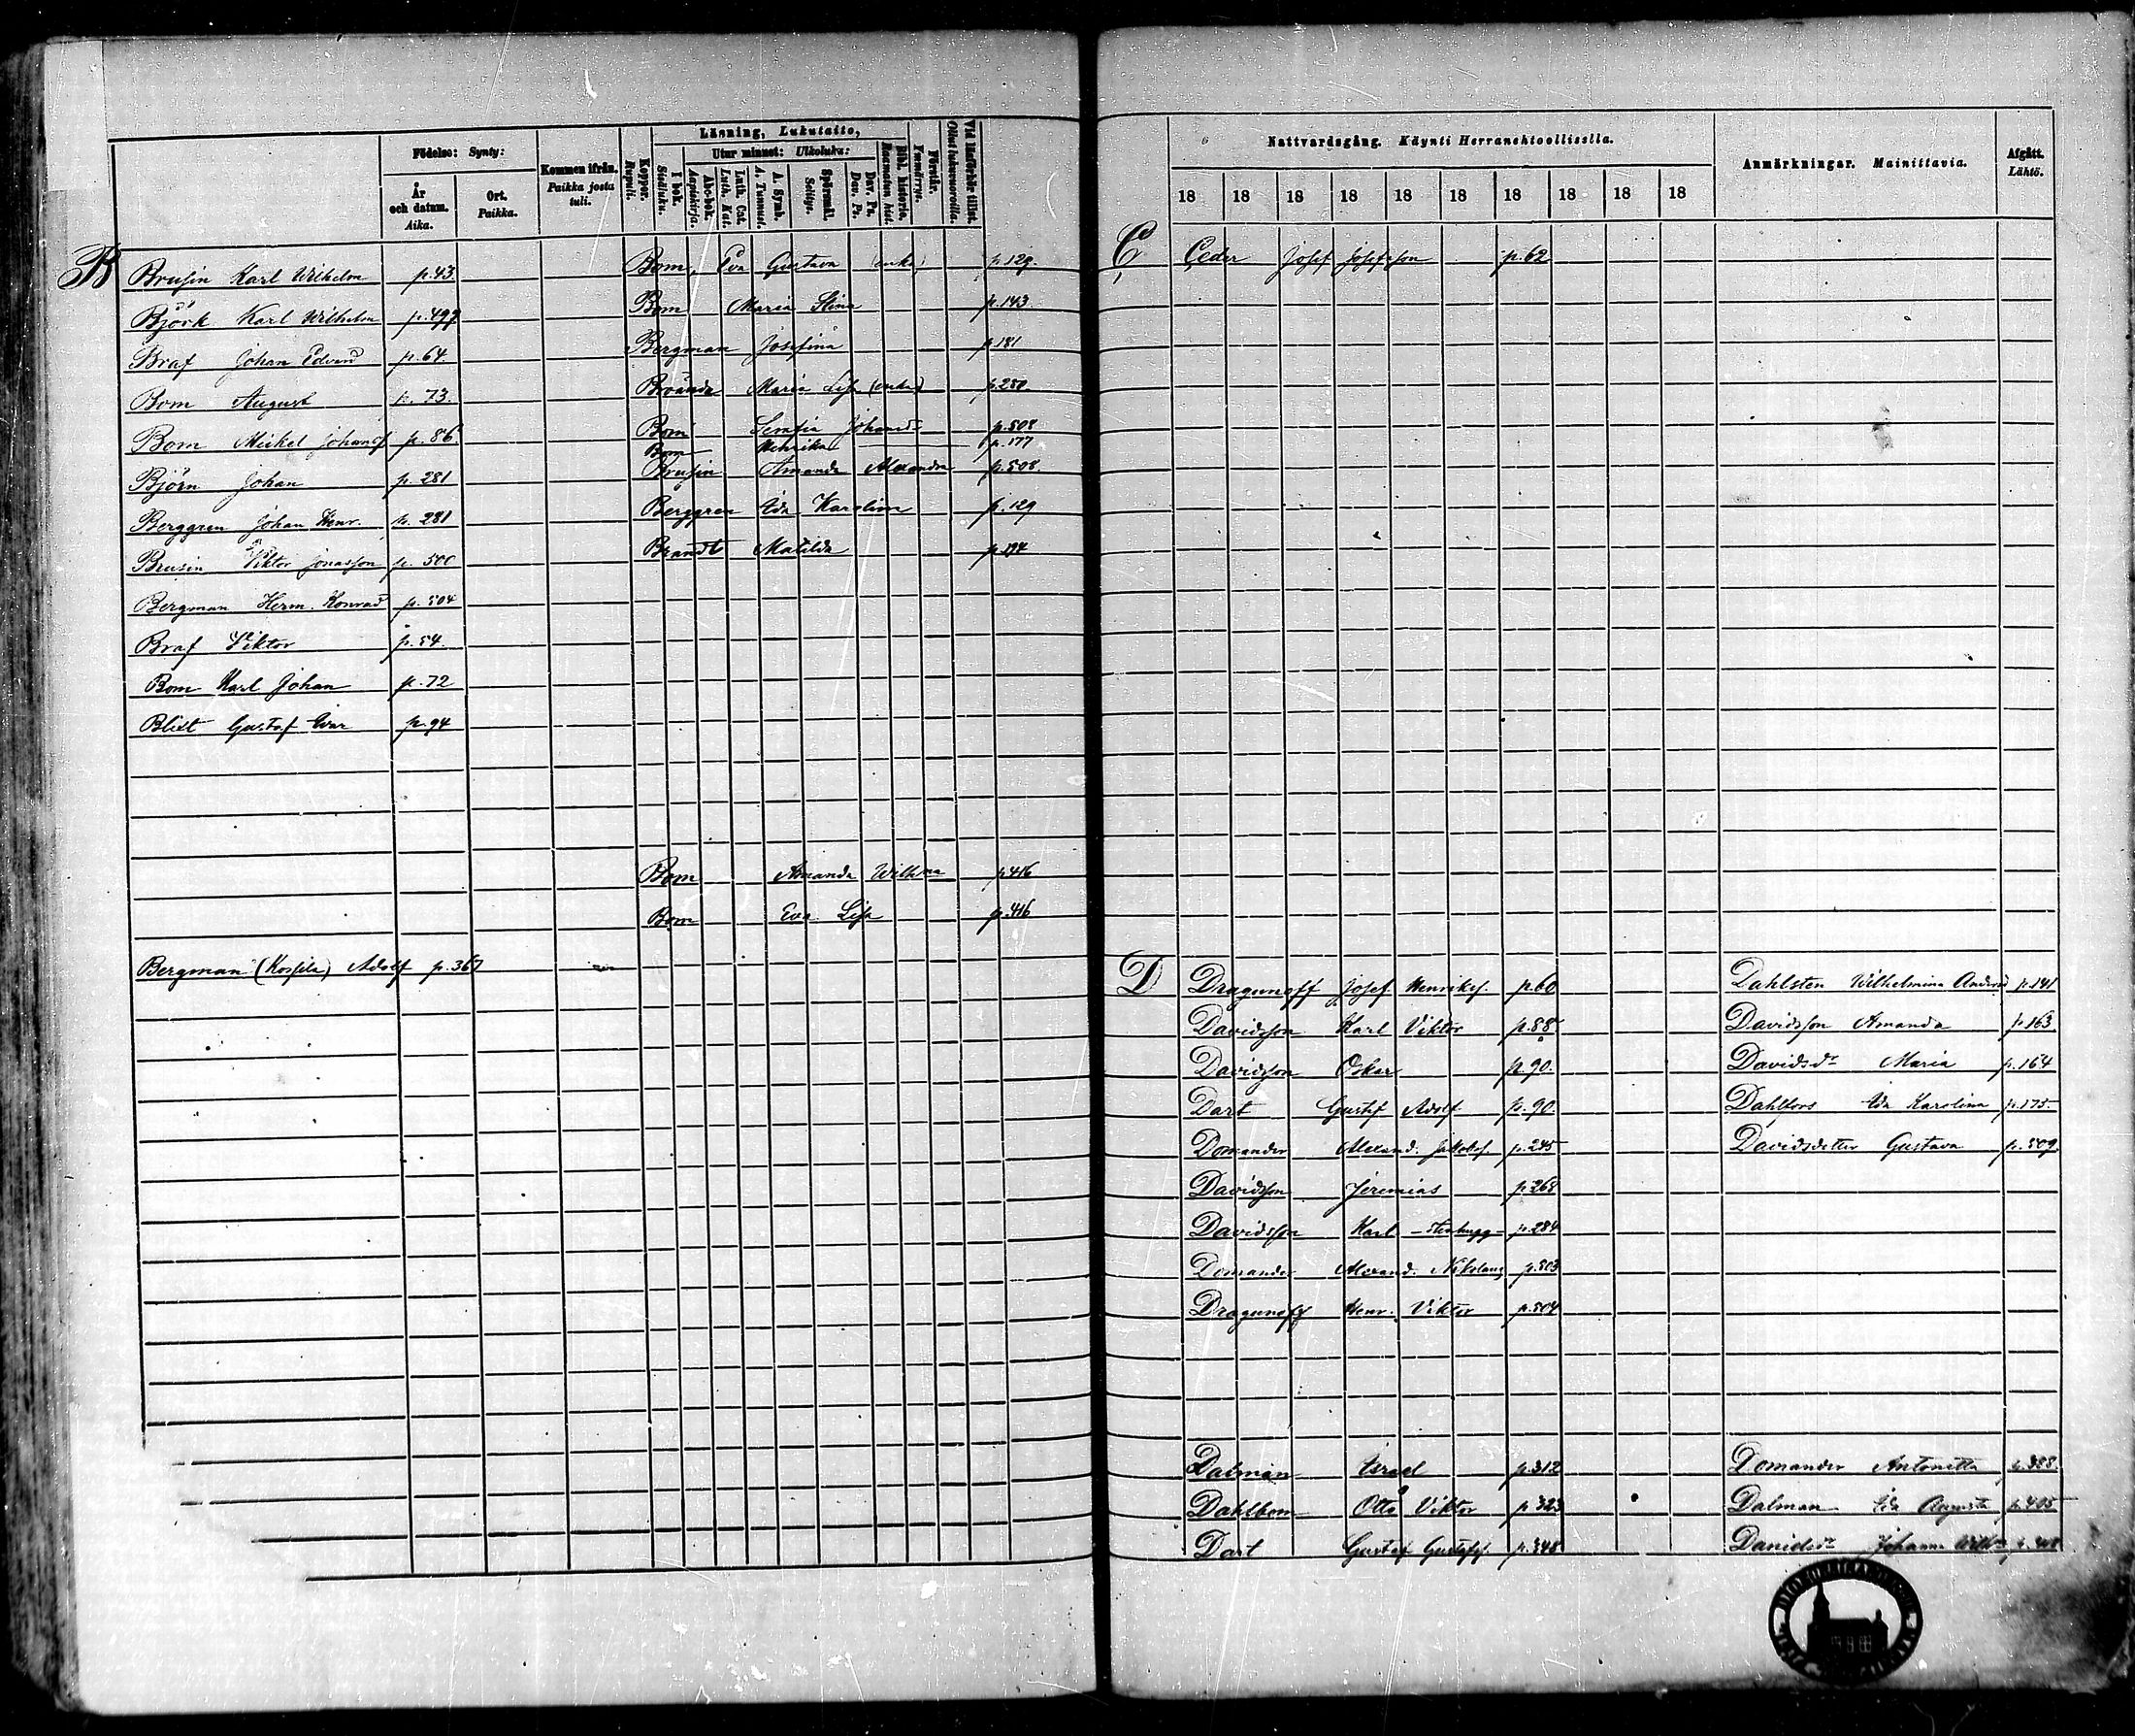 Födelse: Synty:
År och datum. Aika.
Ort. Paikka.
Kommen ifrån. Paikka josta tuli.
Koppor. Rupuli.
Läsning, Lukutaito,
I bok. Sisäluku.
Utur minnet: Ulkoluku:
Abc-bok. Aapiskirja.
Luth. Cat. Luth. Kat.
A. Symb. A. Tunnust.
Spörsmål. Selitys.
Dav. Ps. Dav. Ps.
Bibl. historia. Raamatun hist.
Förstår. Ymmärrys.
Vid läsförhör tillst. Ollut lukuvuoroilla.
B
Brusin Karl Wilhelm p.43
Björk Karl Wilhelm p.499
Braf Johan Edvard p.64.
Bom August p. 73.
Bom Mickel Johansf p. 86
Björn Johan p. 281
Berggren Johan Henr. p. 281
Brusin Viktor Jonasson p. 500
Bergman Herm. Konrad p. 504
Braf Viktor p.54.
Bom Karl Johan p.72
Blixt Gustaf Evar p.94
Bergman (Kossila) Adolf p.367
Bom, Eva Gustava (enka) p.129.
Bom Maria Stina p.143
Bergman Josefina p.181
Maria Lisa (enka) p.280
Bom Serafia Johansdr p.508
Bom Henrika p.177
Brusin Amanda Alexandra p.508.
Berggren Ida Karolina p.129
Brandt Matilda p.194
Bom Amanda Wilhma p.416
Bom Eva Lisa p.416
Nattvardsgång. Käynti Herranehtoollisella.
18 18 18 18 18 18 18 18 18 18
Anmärkningar. Mainittavia.
Afgått. Lähtö.
C
Ceder Josef Josefsson p.62
D
Dragunoff Josef Henriksf. p.60
Davidsson Karl Viktor p.88
Davidsson Oskar p.90.
Dart Gustaf Adolf p.90.
Domander Alexand. Jakobsf. p.245
Davidsson Jeremias p.268
Davidsson Karl p.284
Domander Alexand. Nikolaus p.503
Dragunoff Henr. Viktor p.504
Dalman Israel p.312
Dahlbom Otto Viktor p.323
Dart Gustaf Gustafsf. p.348
Dahlsten Wilhelmina Andersd p.141
Davidsson Amanda p.163
Davidsdr Maria p.164
Dahlfors Ida Karolina p.175.
Davidsdotter Gustava p.509.
Domander Antonetta p.388.
Dalman Ida Augusta p.405
Johanna